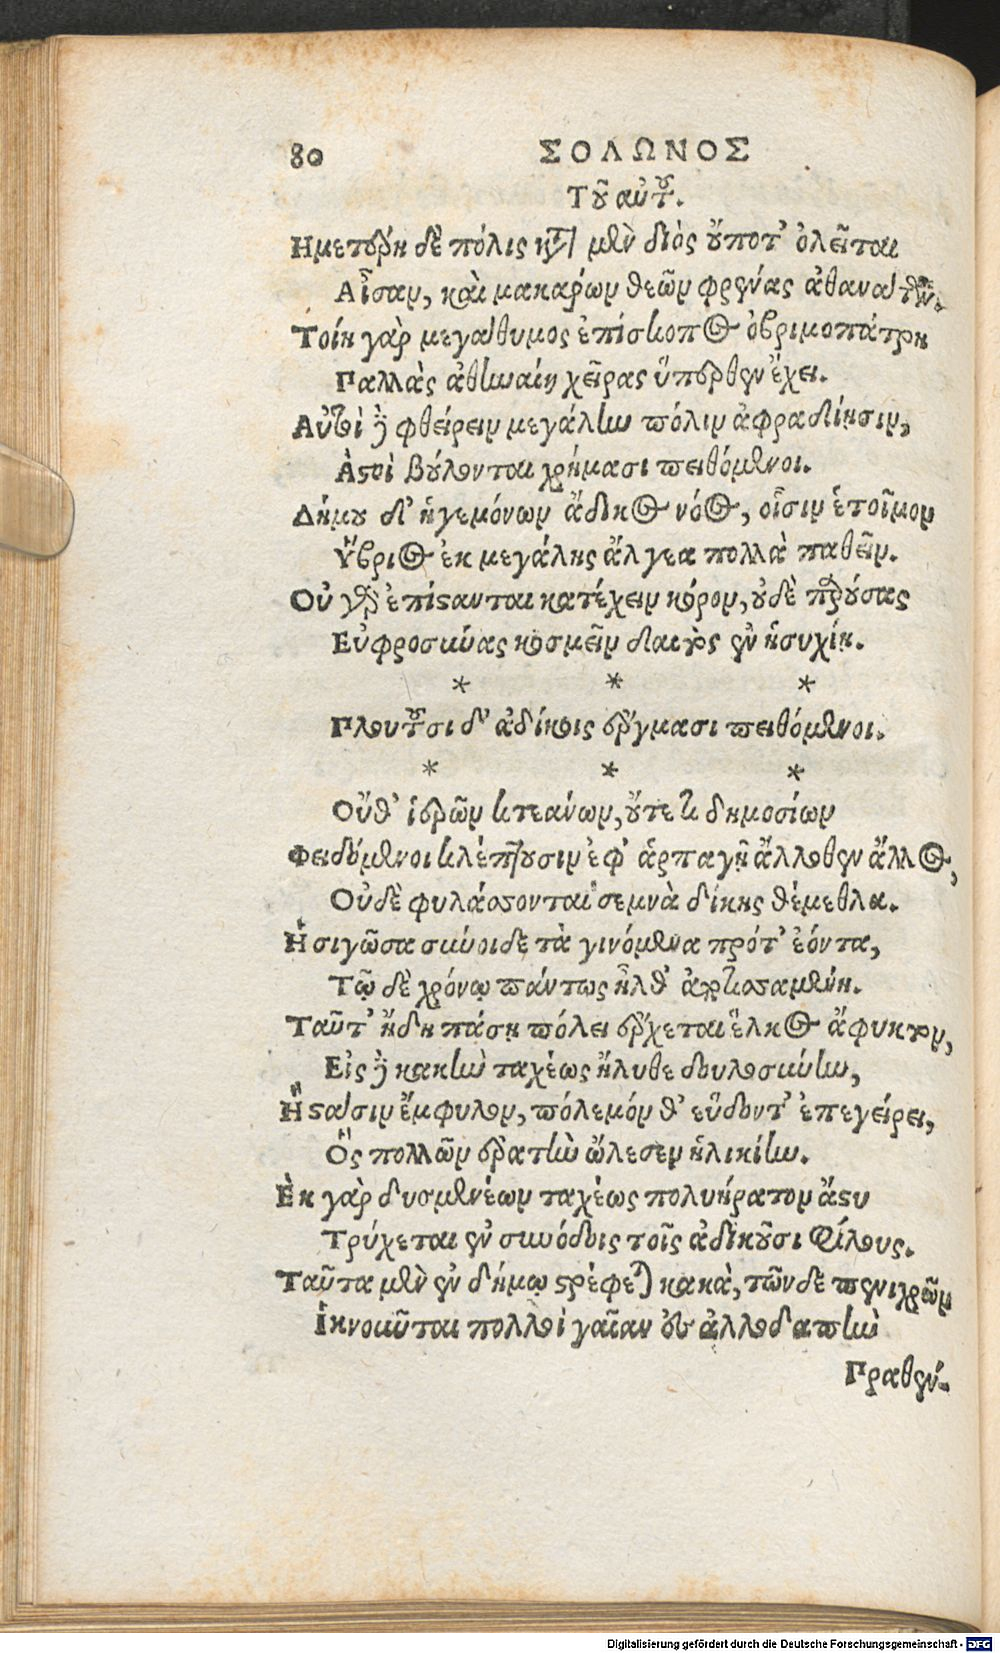 80 ΣΟΛΩΝΟΣ
Τοῦ αὐτοῦ.
Ημετέρη δὲ πόλις κατὰ μὲν διὸς οὔποτ' ὀλεῖται
Αἶσαν, καὶ μακάρων θεῶν φρένας ἀθανάτων.
Τοίη γὰρ μεγάθυμος ἐπίσκοπος ὀβριμοπάτρη
Παλλὰς ἀθηναίη χεῖρας ὕπερθεν ἔχει.
Αὐτοὶ δὲ φθείρειν μεγάλην πόλιν ἀφραδίησιν,
Ἀστοὶ βούλονται χρήμασι πειθόμενοι.
Δήμου δ' ἡγεμόνων ἄδικος νόος, οἷσιν ἑτοῖμον
Ὕβριος ἐκ μεγάλης ἄλγεα πολλὰ παθεῖν.
Οὐ γὰρ ἐπίστανται κατέχειν κόρον, οὐδὲ παρούσας
Εὐφροσύνας κοσμεῖν δαιτὸς ἐν ἡσυχίη.
* * *
Πλουτοῦσι δ' ἀδίκοις ἔργμασι πειθόμενοι.
* * *
Οὔθ' ἱερῶν κτεάνων, οὔτε τι δημοσίων
Φειδόμενοι κλέπτουσιν ἐφ' ἁρπαγῇ ἄλλοθεν ἄλλος,
Οὐδὲ φυλάσσονται σεμνὰ δίκης θέμεθλα.
Ἡ σιγῶσα σύνοιδε τὰ γινόμενα πρότ' ἐόντα,
Τῷ δὲ χρόνῳ πάντως ἦλθ' ἀποτισαμένη.
Ταῦτ' ἤδη πάσῃ πόλει ἔρχεται ἕλκος ἄφυκτον,
Εἰς δὲ κακὴν ταχέως ἤλυθε δουλοσύνην,
Ἣ στάσιν ἔμφυλον, πόλεμόν θ' εὕδοντ' ἐπεγείρει,
Ὃς πολλῶν ἐρατὴν ὤλεσεν ἡλικίην.
Ἐκ γὰρ δυσμενέων ταχέως πολυήρατον ἄστυ
Τρύχεται ἐν συνόδοις τοῖς ἀδικοῦσι φίλους.
Ταῦτα μὲν ἐν δήμῳ στρέφεται κακὰ, τῶν δὲ πενιχρῶν
Ἱκνοῦνται πολλοὶ γαῖαν ἐς ἀλλοδαπὴν
Πραθέν-
Digitalisierung gefördert durch die Deutsche Forschungsgemeinschaft - DFG